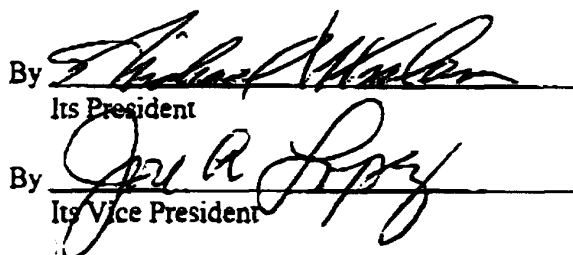 By Michael
Its President
By Joe R Lopez
Its Vice President